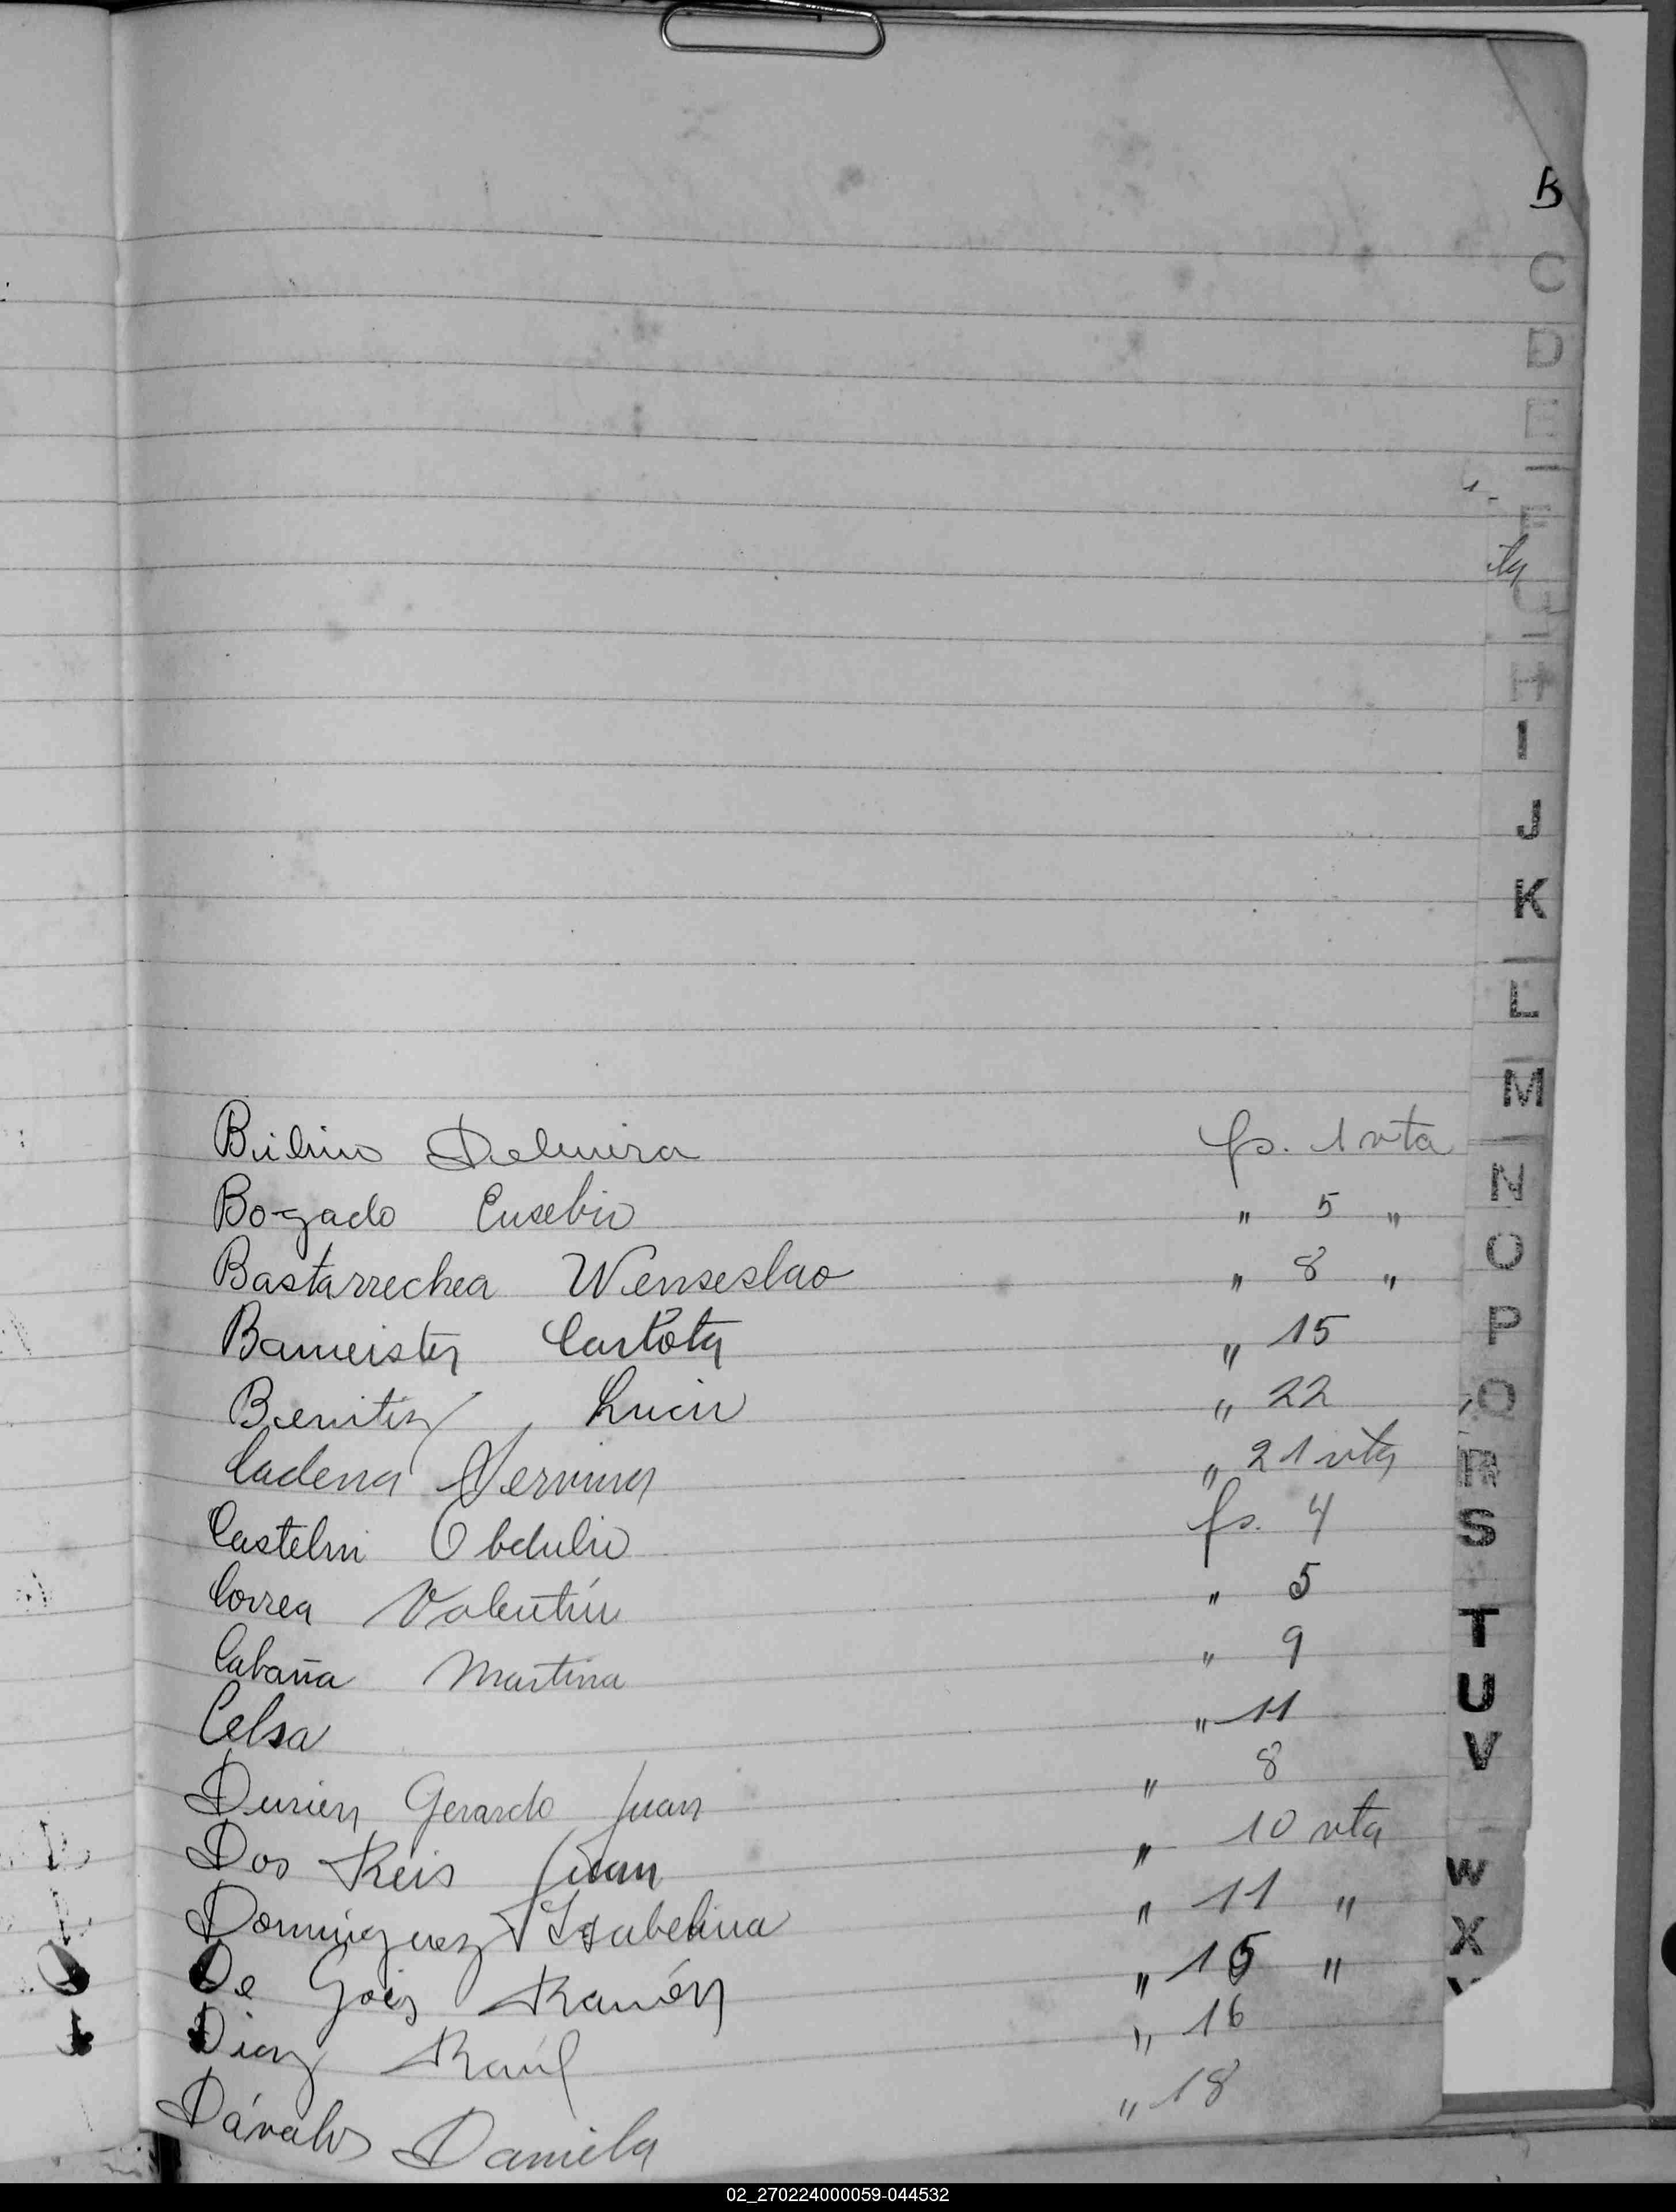 B
C
D
E
F
G
H
I
J
K
L
M
N
O
P
Q
R
S
T
U
V
W
X
Delmira fs. 1 vta
Bogado Eusebio " 5 "
Bastarrechea Wenseslao " 8 "
Bameister Carlota " 15
Benitez Lucio " 22
Cadena Nervina " 21 vta
Castelni Obdulio fs. 4
Correa Valentín " 5
Cabaña Martina " 9
Celsa " 11
Gerardo Juan " 8
Dos Reis Juan " 10 vta
Dominguez Isabelina " 11 "
De Gois Ramón " 15 "
Diaz Raúl " 16
Dávalos Daniela " 18
02_270224000059-044532